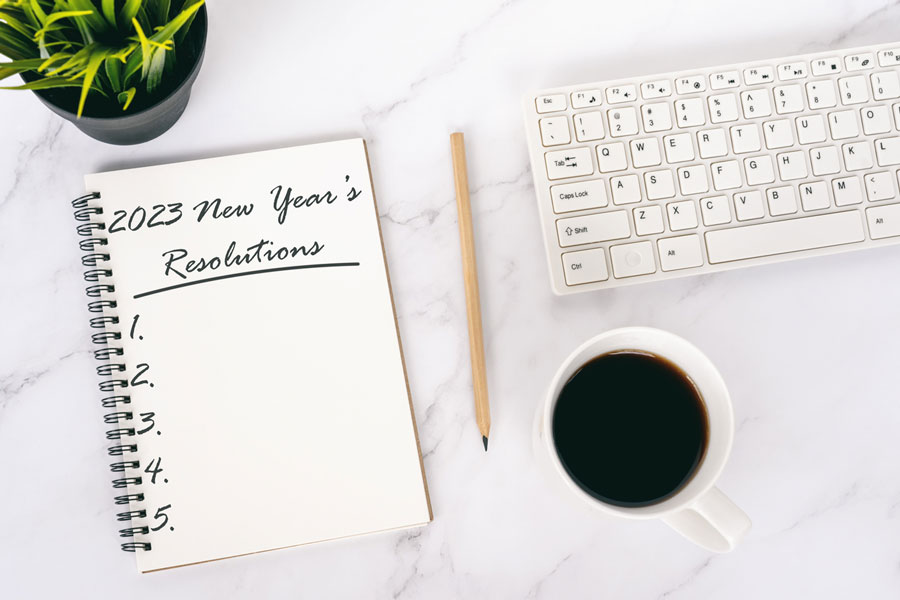 2023 New Year's
Resolutions
1.
2.
3.
4.
5.
Esc F1 F2 F3 F4 F5 F6 F7 F8 F9 F10
~ ` ! 1 @ 2 # 3 $ 4 % 5 ^ 6 & 7 * 8 ( 9 ) 0
Tab Q W E R T Y U I O
Caps Lock A S D F G H J K L
Shift Z X C V B N M < ,
Ctrl Alt Alt